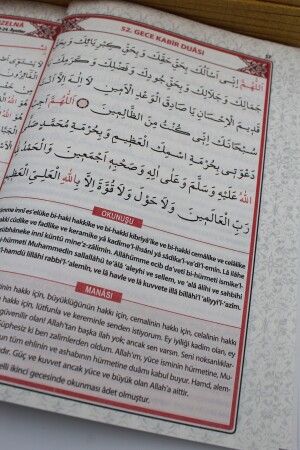 52. GECE KABİR DUÂSI
اَللّٰهُمَّ اِنِّى اَسْئَلُكَ بِحَقِّ حَقِّكَ وَبِحَقِّ كِبْرِيَائِكَ وَبِحَقِّ
جَمَالِكَ وَجَلَالِكَ وَبِحَقِّ جُودِكَ وَفَضْلِكَ وَكَرَمِكَ
قَدِيمَ الْاِحْسَانِ يَا صَادِقَ الْوَعْدِ الْاَمِينِ لَا اِلٰهَ اِلَّا
سُبْحَانَكَ اِنِّى كُنْتُ مِنَ الظَّالِمِينَ اَللّٰهُمَّ اَجِبْ
دَعْوَتِى بِحُرْمَةِ اسْمِكَ الْعَظِيمِ وَبِحُرْمَةِ مُحَمَّدٍ صَلَّى
اللّٰهُ عَلَيْهِ وَسَلَّمَ وَعَلٰى اٰلِهِ وَصَحْبِهِ اَجْمَعِينَ وَالْحَمْدُ لِلّٰهِ
رَبِّ الْعَالَمِينَ وَلَا حَوْلَ وَلَا قُوَّةَ اِلَّا بِاللّٰهِ الْعَلِيِّ الْعَظِيمِ
OKUNUŞU
innî es'elüke bi-hakkı hakkike ve bi-hakkı kibriyâ'ike ve bi-hakkı cemalike ve celâlike
hakkı cûdike ve fadlike ve keramike yâ kadîme'l-ihsâni yâ sâdıka'l-va'di'l-emîn. Lâ ilâhe
sübhâneke innî küntü mine'z-zâlimîn. Allahümme ecib da'vetî bi-hürmeti ismike'l-
bi-hürmeti Muhammedin sallallahü te'âlâ 'aleyhi ve sellem, ve 'alâ âlihî ve sahbihî
lillâhi rabbi'l-'alemîn, ve lâ havle ve lâ kuvvete illâ billâhi'l 'aliyyi'l-'azîm.
MANÂSI
hakkı için, büyüklüğünün hakkı için, cemalinin hakkı için, celalinin hakkı
hakkı için, lütfunla ve kereminle senden istiyorum. Ey iyiliği kadim olan, ey
güvenilir olan! Allah'tan başka ilah yok; ancak sen varsın. Seni noksanlıklar-
Şüphesiz ki ben zalimlerden oldum. Allah'ım, yüce isminin hürmetine, Mu-
tüm ehlinin ve ashabının hürmetine duâmı kabul buyur. Hamd, alem-
Güç ve kuvvet ancak yüce ve büyük olan Allah'a aittir.
elli ikinci gecesinde okunması âdet olmuştur.